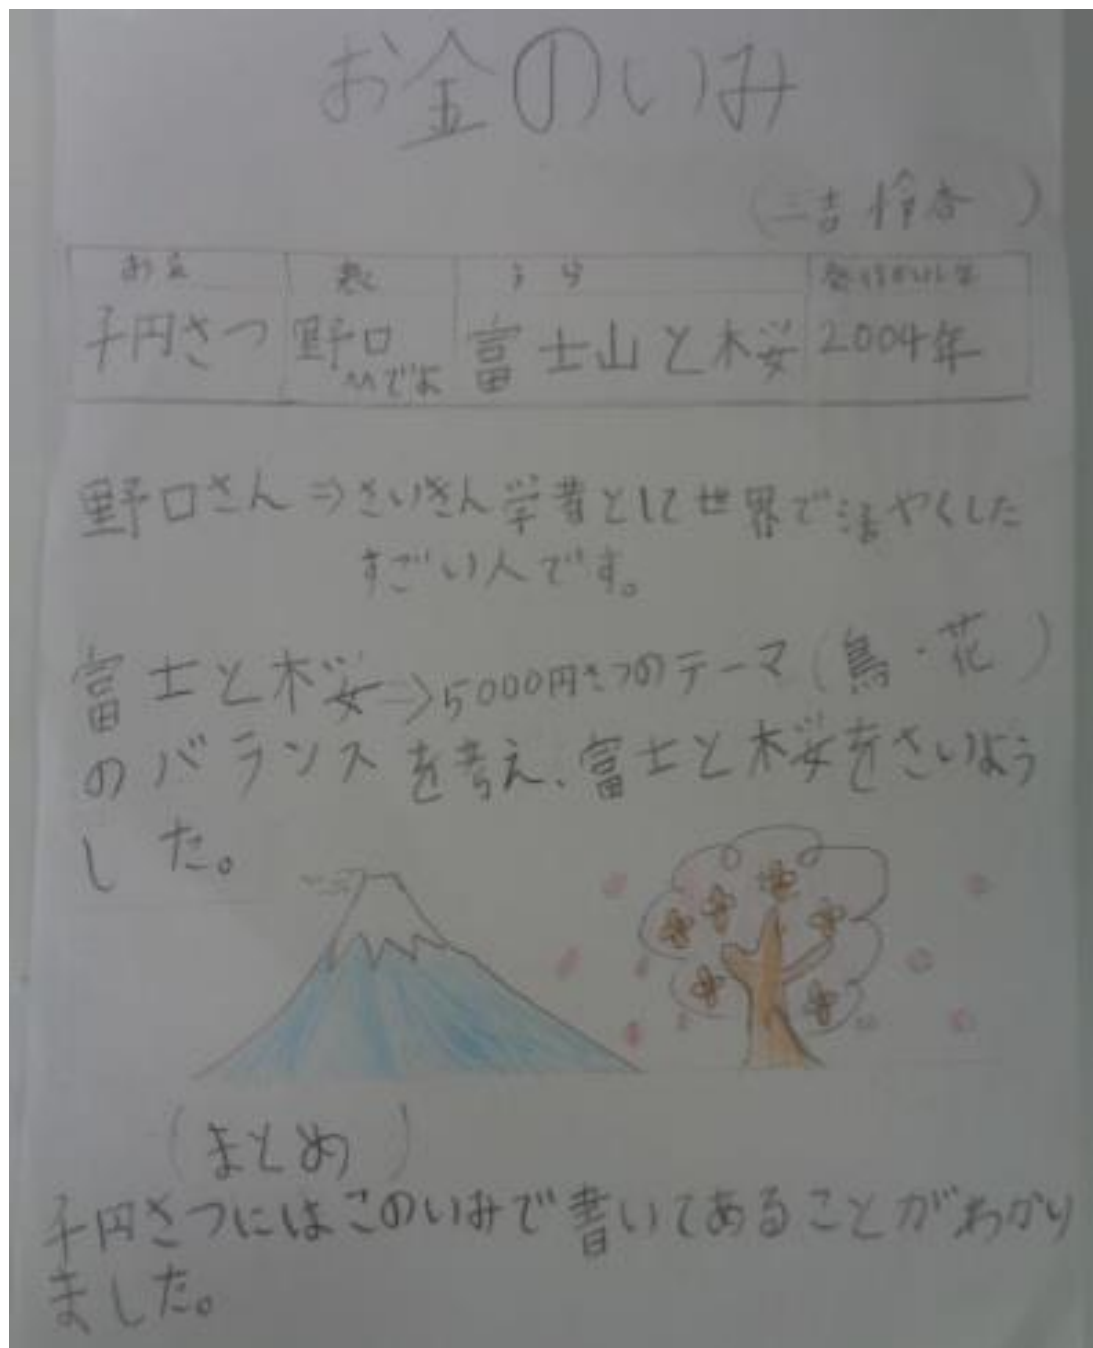 お金のいみ
(三吉怜香)
お金 表 うら 発行かいし年
千円さつ 野口ひでよ 富士山と桜 2004年
野口さん⇒さいきん学者として世界で活やくした
すごい人です。
富士と桜⇒5000円さつのテーマ(鳥・花)
のバランスを考え、富士と桜をさいよう
した。
(まとめ)
千円さつにはこのいみで書いてあることがわかり
ました。